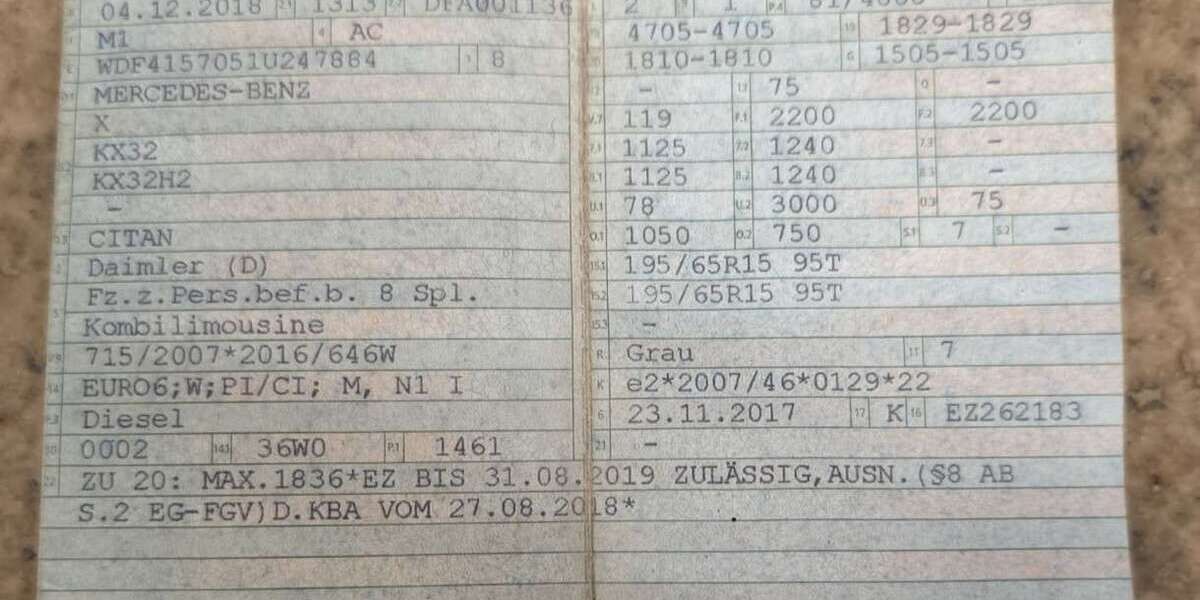 04.12.2018 1313 DFA001136 2 1 81/4000
M1 AC 4705-4705 1829-1829
WDF4157051U247884 8 1810-1810 1505-1505
MERCEDES-BENZ - 75 -
X 119 2200 2200
KX32 1125 1240 -
KX32H2 1125 1240 -
- 78 3000 75
CITAN 1050 750 7 -
Daimler (D) 195/65R15 95T
Fz.z.Pers.bef.b. 8 Spl. 195/65R15 95T
Kombilimousine -
715/2007*2016/646W Grau 7
EURO6;W;PI/CI; M, N1 I e2*2007/46*0129*22
Diesel 23.11.2017 K EZ262183
0002 36W0 1461 -
ZU 20: MAX.1836*EZ BIS 31.08.2019 ZULÄSSIG,AUSN.(§8 AB
S.2 EG-FGV)D.KBA VOM 27.08.2018*